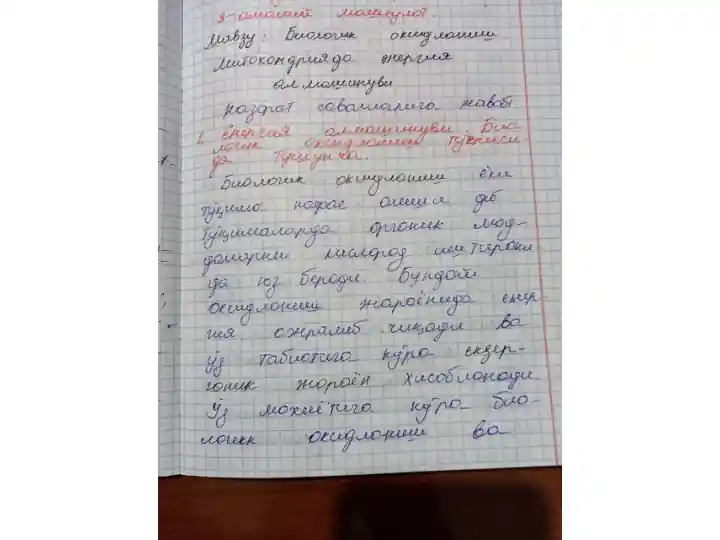 амалий машғулот.
Мавзу: Биологик оксидланиш
Митохондрияда энергия
алмашинуви
назрат саволларига жавоб
1. Енергия алмашинуви. Био
логик оксидланиш тўғриси
да тушунча.
Биологик оксидланиш ёки
тўқима нафас олиши деб
тўқималарда органик мод-
даларни кислород иштироки
да юз беради. Бундай
оксидланиш жараёнида енер-
гия ажралиб чиқади ва
ўз табиатига кўра екзер-
гоник жараён хисобланади
Ўз мохиётига кўра био-
логик оксидланиш ва